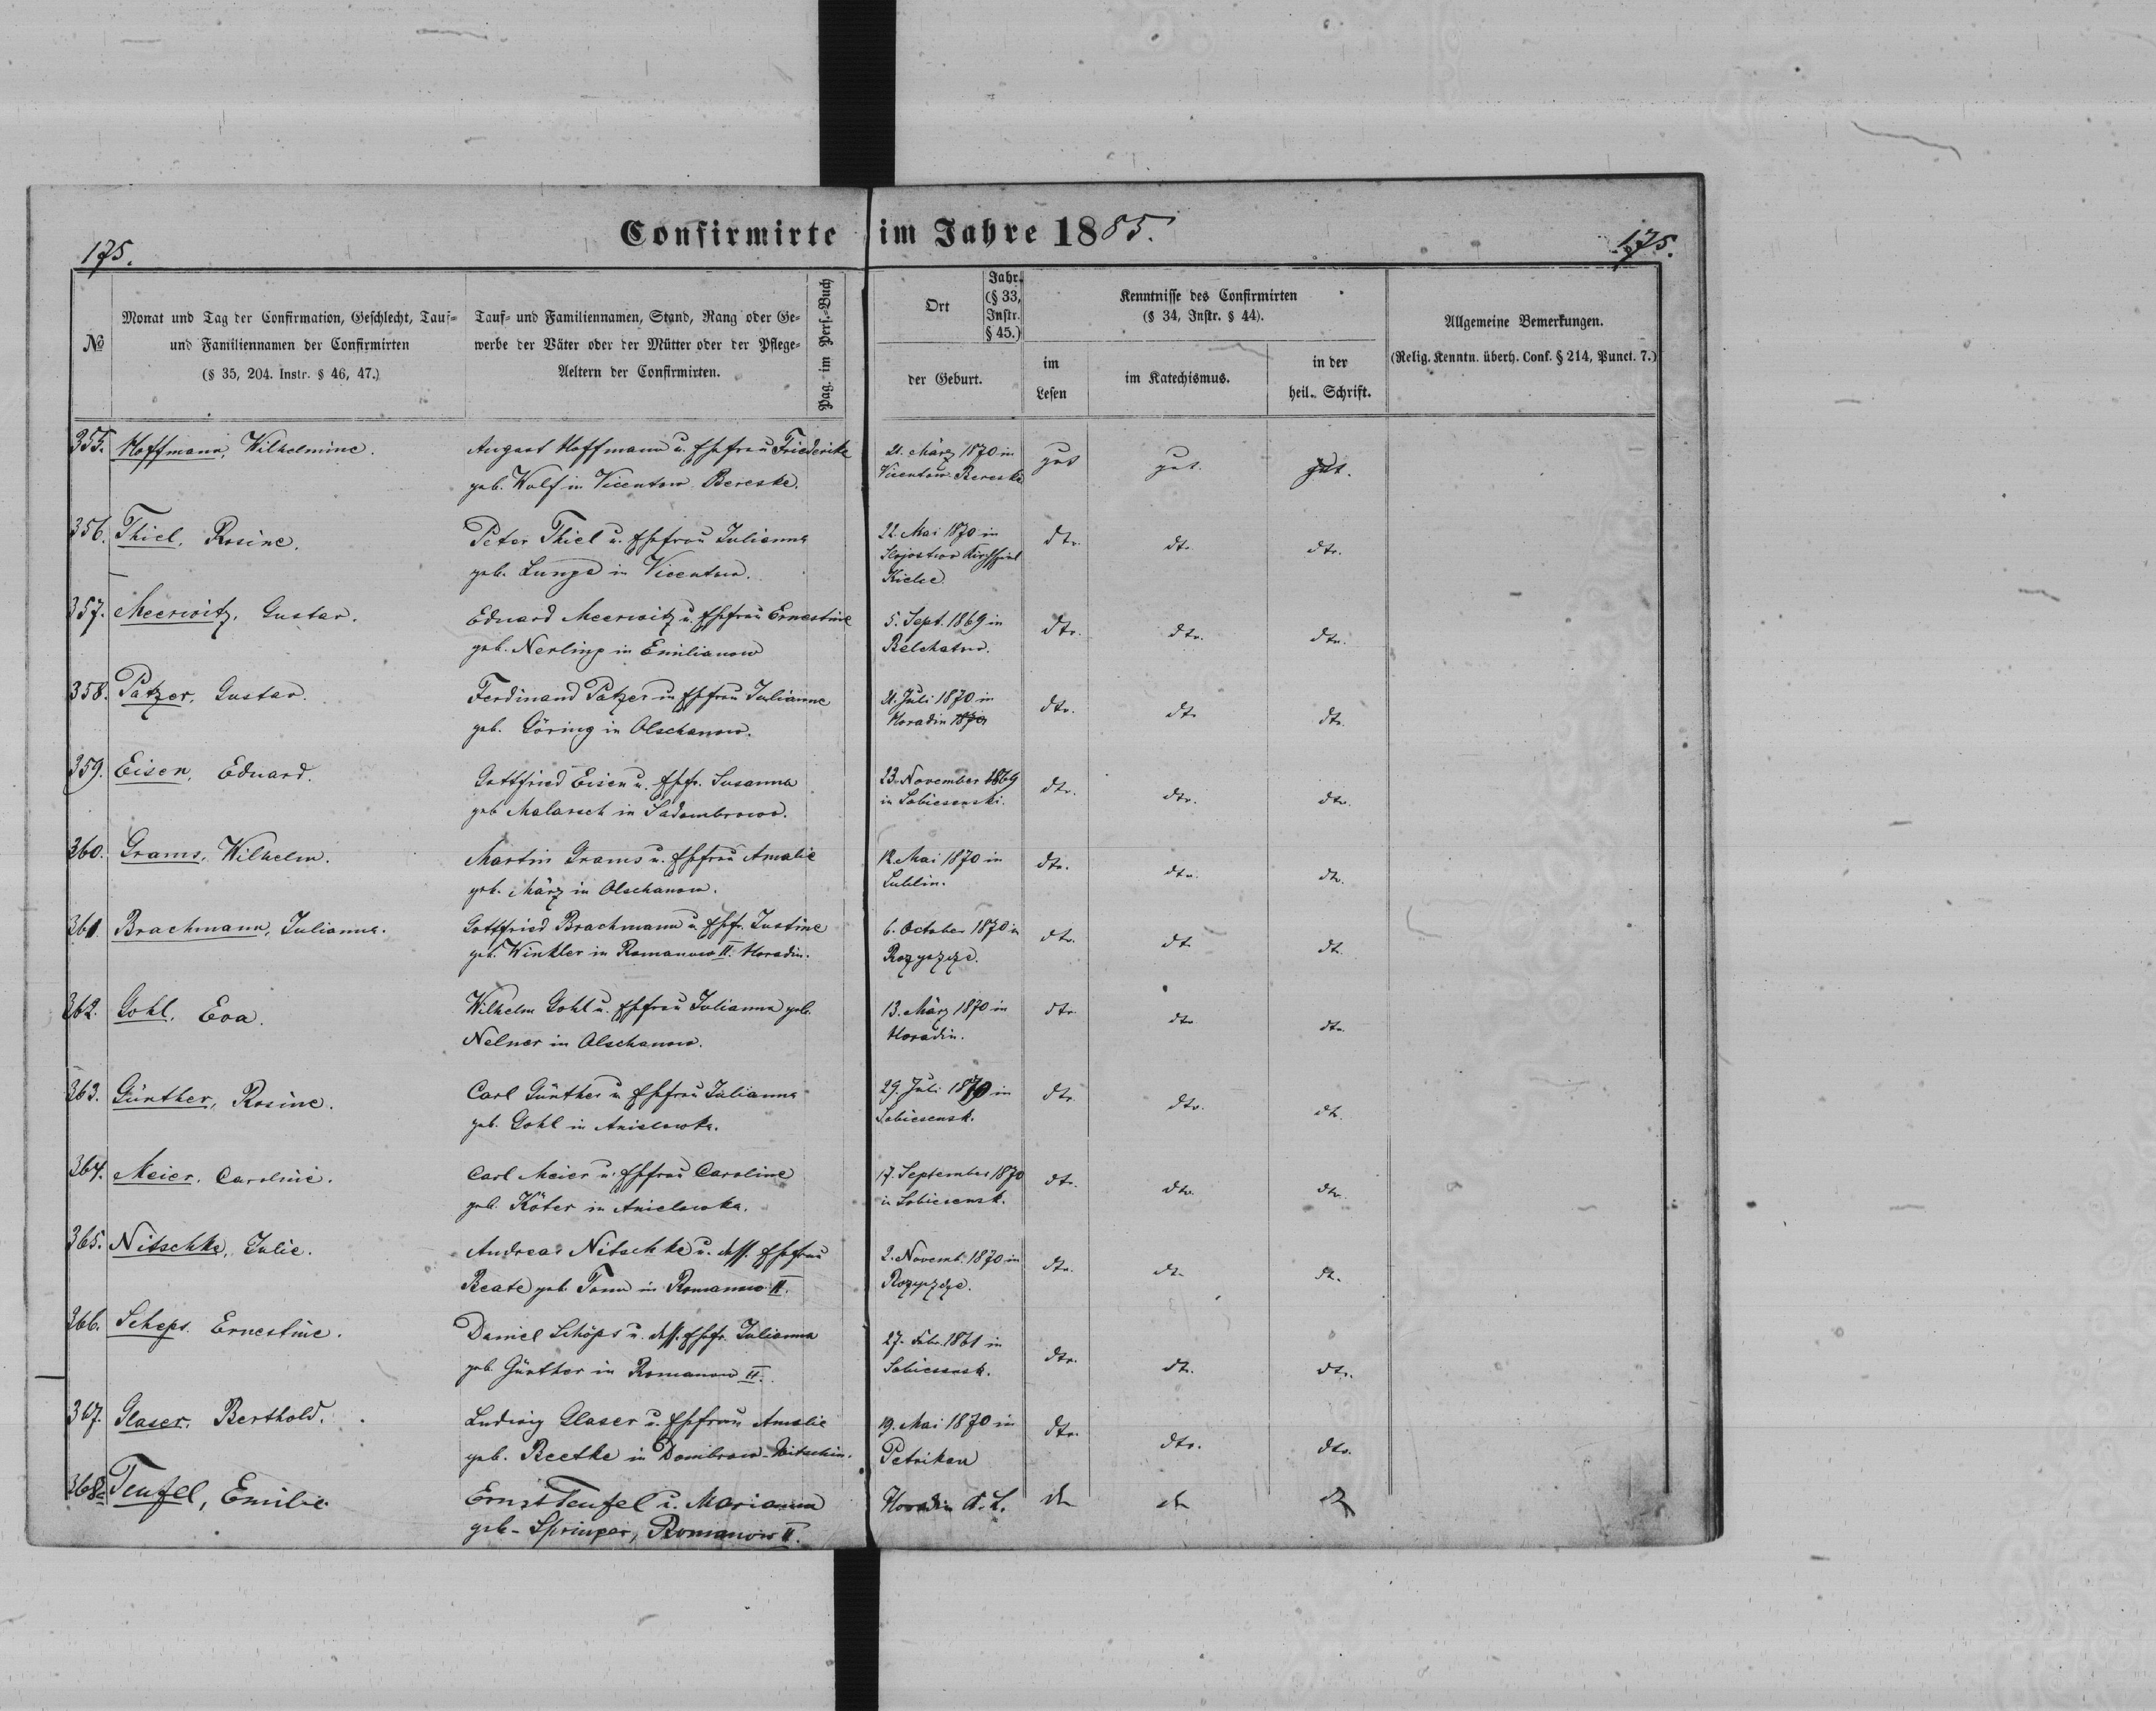 Confirmirte im Jahre 1885.
175.
175.
№
Monat und Tag der Confirmation, Geschlecht, Tauf-
und Familiennamen der Confirmirten
(§ 35, 204. Instr. § 46, 47.)
Tauf- und Familiennamen, Stand, Rang oder Ge-
werbe der Väter oder der Mütter oder der Pflege-
Aeltern der Confirmirten.
Pag. im Pers.-Buch
Ort
Jahr.
(§ 33,
Instr.
§ 45.)
der Geburt.
Kenntnisse des Confirmirten
(§ 34, Instr. § 44).
im
Lesen
im Katechismus.
in der
heil. Schrift.
Allgemeine Bemerkungen.
(Relig. Kenntn. überh. Conf. § 214, Punct. 7.)
355. Hoffmann, Wilhelmine.
August Hoffmann u. Ehefrau Friederike
geb. Wolf in Vicentow Bereske.
21. März 1870 in
Vicentow Bereske
gut gut. gut.
356. Thiel, Rosine.
Peter Thiel u. Ehefrau Julianna
geb. Lunge in Vicentow.
22. Mai 1870 in
Kirchspiel
Kielce
dto. dto. dto.
357. Meerwitz, Gustav.
Eduard Meerwitz u. Ehefrau Ernestine
geb. Nerling in Emilianow
5. Sept. 1869 in
Belchatow.
dto. dto. dto.
358. Patzer, Gustav.
Ferdinand Patzer u. Ehefrau Julianne
geb. Göring in Olschanow.
21. Juli 1870 in
Horadin 1870
dto. dto. dto.
359. Eisen, Eduard.
Gottfried Eisen u. Ehefr. Susanna
geb. Malarsch in Sadombrowo.
23. November 1869
in Sobiesenski.
dto. dto. dto.
360. Grams, Wilhelm.
Martin Grams u. Ehefrau Amalie
geb. März in Olschanow.
12. Mai 1870 in
Lublin.
dto. dto. dto.
361 Brachmann, Julianna.
Gottfried Brachmann u. Ehefr. Justine
geb. Winkler in Romanow II. Horadin.
6. October 1870 in
Rozyszcze.
dto. dto. dt.
362. Gohl, Eva.
Wilhelm Gohl u. Ehefrau Julianna geb.
Nelner in Olschanow.
13. März 1870 in
Horadin.
dto. dto. dto.
363. Günther, Rosine.
Carl Günther u. Ehefrau Julianna
geb. Gohl in Anielowka.
29. Juli 1870 in
Sobiesensk.
dto. dto. dto.
364. Meier, Caroline.
Carl Meier u. Ehefrau Caroline
geb. Köter in Anielowka.
17. September 1870
in Sobiesensk.
dto. dto. dto.
365. Nitschke, Julie.
Andreas Nitschke u. dess. Ehefrau
Beate geb. Tonn in Romanow II.
2. Novemb. 1870 in
Rozyszcze.
dto. dto. dto.
366. Scheps Ernestine.
Daniel Schöps u. dess. Ehefr. Julianna
geb. Günther in Romanow II.
27. Febr. 1861 in
Sobiesensk.
dto. dto. dto.
367. Glaser, Berthold.
Ludwig Glaser u. Ehefrau Amalie
geb. Beetke in Dombrow-Nitschin.
19. Mai 1870 in
Petrikau
dto. dto. dto.
368. Teufel, Emilie
Ernst Teufel u. Marianna
geb. Springer, Romanow II.
Horadin
dto dto dto